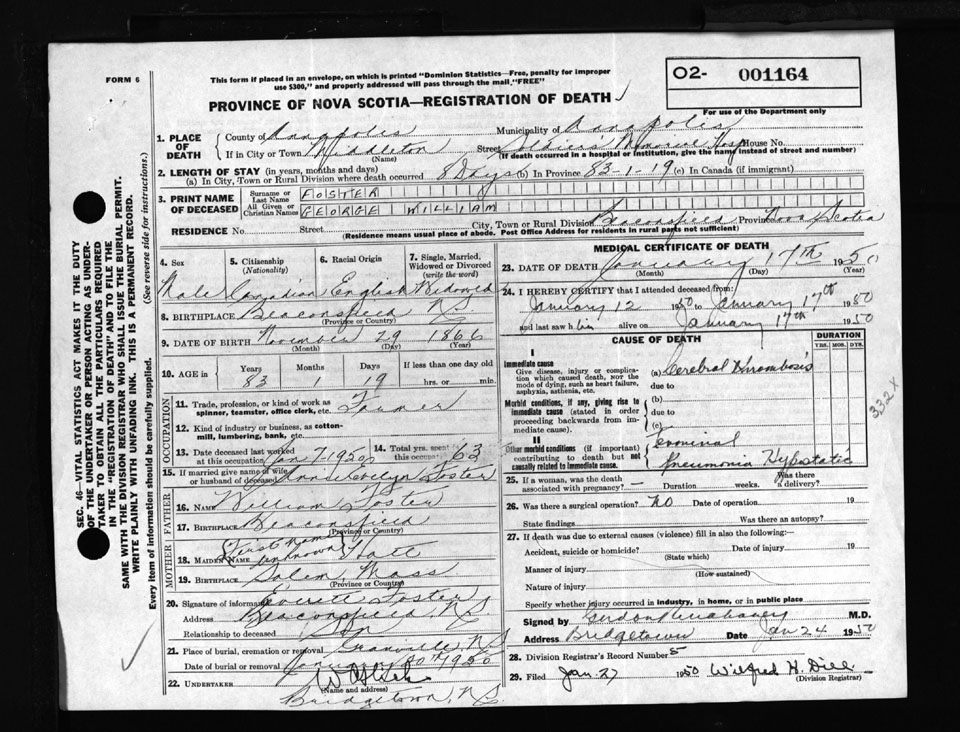 FORM 6
This form if placed in an envelope, on which is printed "Dominion Statistics—Free, penalty for improper
use $300," and properly addressed will pass through the mail, "FREE"
O2- 001164
For use of the Department only
PROVINCE OF NOVA SCOTIA—REGISTRATION OF DEATH
1. PLACE OF DEATH
County of Annapolis Municipality of Annapolis
If in City or Town Middleton Street Soldiers Memorial Hosp House No.
(Name) (If death occurred in a hospital or institution, give the name instead of street and number)
2. LENGTH OF STAY (in years, months and days)
(a) In City, Town or Rural Division where death occurred 8 Days (b) In Province 83-1-19 (c) In Canada (if immigrant)
3. PRINT NAME OF DECEASED
Surname or Last Name FOSTER
All Given or Christian Names GEORGE WILLIAM
RESIDENCE No. Street City, Town or Rural Division Beaconsfield Province Nova Scotia
(Residence means usual place of abode. Post Office Address for residents in rural parts not sufficient)
4. Sex
Male
5. Citizenship (Nationality)
Canadian
6. Racial Origin
English
7. Single, Married, Widowed or Divorced (write the word)
Widowed
8. BIRTHPLACE Beaconsfield N.S.
(Province or Country)
9. DATE OF BIRTH November 29 1866
(Month) (Day) (Year)
10. AGE in
Years Months Days If less than one day old
83 1 19 hrs. or min.
OCCUPATION
11. Trade, profession or kind of work as spinner, teamster, office clerk, etc. Farmer
12. Kind of industry or business, as cotton-mill, lumbering, bank, etc.
13. Date deceased last worked at this occupation Jan 7 1950
14. Total yrs. spent this occupat 63
15. If married give name of wife or husband of deceased Anna Evelyn Foster
FATHER
16. Name William Foster
17. Birthplace Beaconsfield
MOTHER
18. Maiden Name (First name unknown) Hall
19. Birthplace Salem, Mass
(Province or Country)
20. Signature of informant Everett Foster
Address Beaconsfield, N.S.
Relationship to deceased Son
21. Place of burial, cremation or removal Granville, N.S.
Date of burial or removal January 20th 1950
22. UNDERTAKER
(Name and address)
Bridgetown, N.S.
MEDICAL CERTIFICATE OF DEATH
23. DATE OF DEATH January 17th 1950
(Month) (Day) (Year)
24. I HEREBY CERTIFY that I attended deceased from:
January 12 1950 to January 17th 1950
and last saw him alive on January 17th 1950
CAUSE OF DEATH
DURATION
YRS. MOS. DYS.
I
Immediate cause
Give disease, injury or complication which caused death, not the mode of dying, such as heart failure, asphyxia, asthenia, etc.
(a) Cerebral thrombosis
due to
Morbid conditions, if any, giving rise to immediate cause (stated in order proceeding backwards from immediate cause).
(b)
due to
(c)
II
Other morbid conditions (if important) contributing to death but not causally related to immediate cause.
Terminal
Pneumonia Hypostatic
332 X
25. If a woman, was the death associated with pregnancy? — Duration weeks. Was there a delivery?
26. Was there a surgical operation? NO Date of operation 19
State findings Was there an autopsy?
27. If death was due to external causes (violence) fill in also the following:—
Accident, suicide or homicide? Date of injury 19
(State which)
Manner of injury
(How sustained)
Nature of injury
Specify whether injury occurred in industry, in home, or in public place
Signed by M.D.
Address Bridgetown Date Jan 24 1950
28. Division Registrar's Record Number 5
29. Filed Jan 27 1950 Wilfred H. Dill
(Division Registrar)
SEC. 46—VITAL STATISTICS ACT MAKES IT THE DUTY
OF THE UNDERTAKER OR PERSON ACTING AS UNDER-
TAKER TO OBTAIN ALL THE PARTICULARS REQUIRED
IN THE "REGISTRATION OF DEATH" AND TO FILE THE
SAME WITH THE DIVISION REGISTRAR WHO SHALL ISSUE THE BURIAL PERMIT.
WRITE PLAINLY WITH UNFADING INK. THIS IS A PERMANENT RECORD.
Every item of information should be carefully supplied. (See reverse side for instructions.)